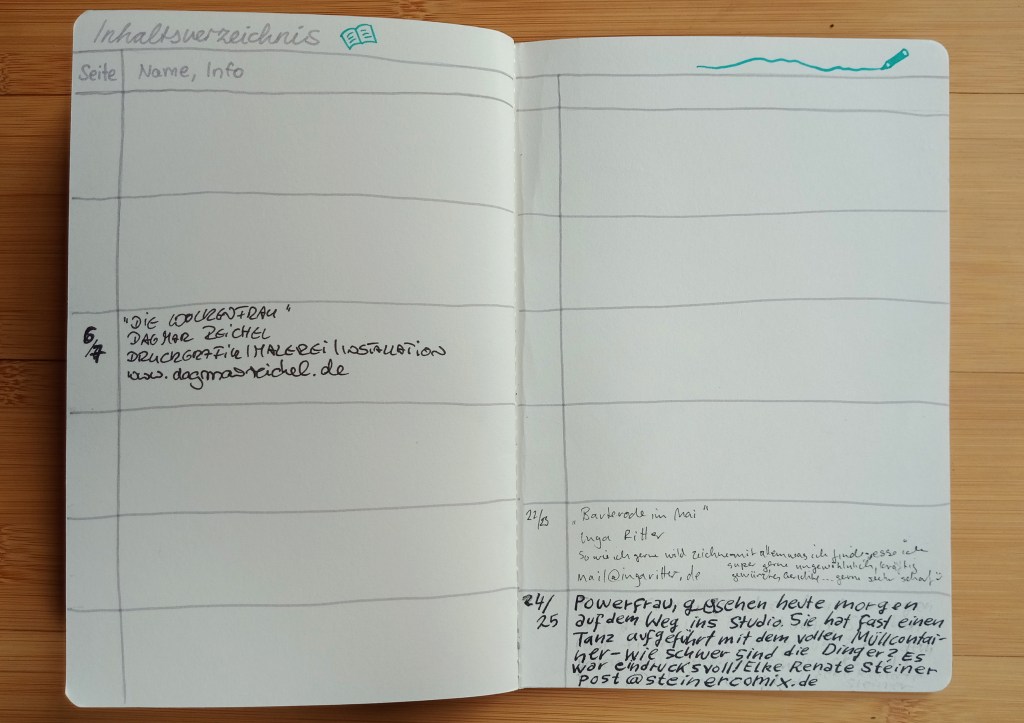 Inhaltsverzeichnis
Seite Name, Info
6/7
"DIE WOLKENFRAU"
DAGMAR REICHEL
DRUCKGRAFIK/MALEREI/INSTALLATION
www.dagmarreichel.de
22/23
„Barterode im Mai"
Inga Ritter
So wie ich gerne wild zeichne mit allem was ich finde, esse ich
super gerne ungewöhnlich, kräftig
mail@ingaritter.de gewürztes ... gerne sehr scharf :)
24/25
Powerfrau, gesehen heute morgen
auf dem Weg ins Studio. Sie hat fast einen
Tanz aufgeführt mit dem vollen Müllcontai-
ner - wie schwer sind die Dinger? Es
war eindrucksvoll! Elke Renate Steiner
post@steinercomix.de